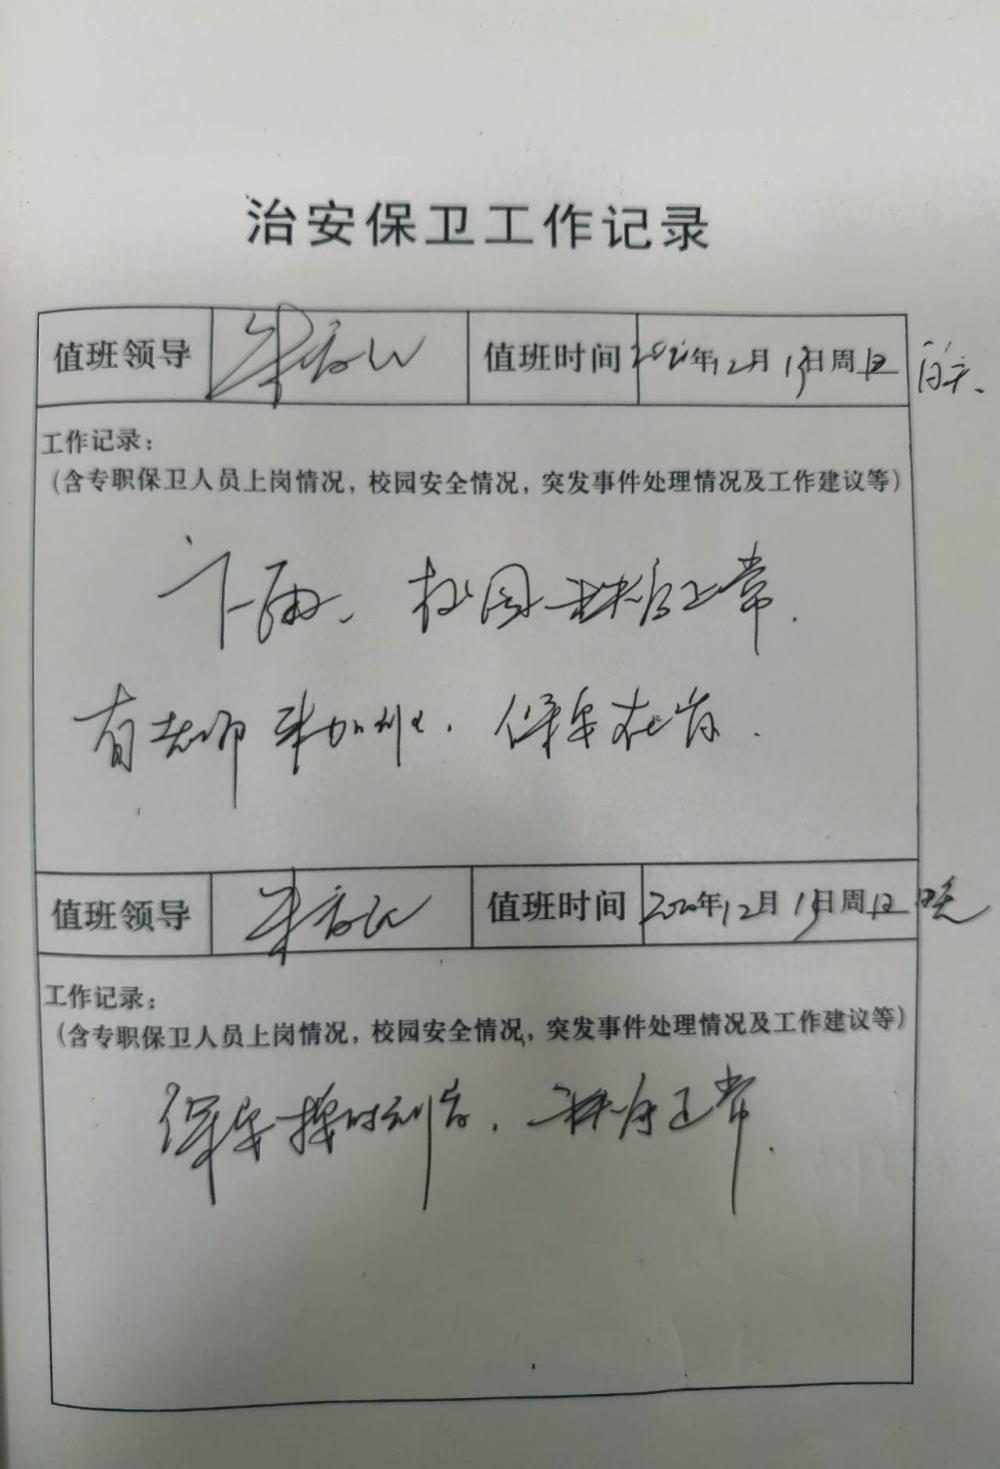 治安保卫工作记录
值班领导 值班时间 2020年12月13日周日 白天、
工作记录：
（含专职保卫人员上岗情况，校园安全情况，突发事件处理情况及工作建议等）
下雨、校园秩序正常.
有老师来加班.保安在岗.
值班领导 值班时间 2020年12月13日周日 晚
工作记录：
（含专职保卫人员上岗情况，校园安全情况，突发事件处理情况及工作建议等）
保安按时到岗.秩序正常.